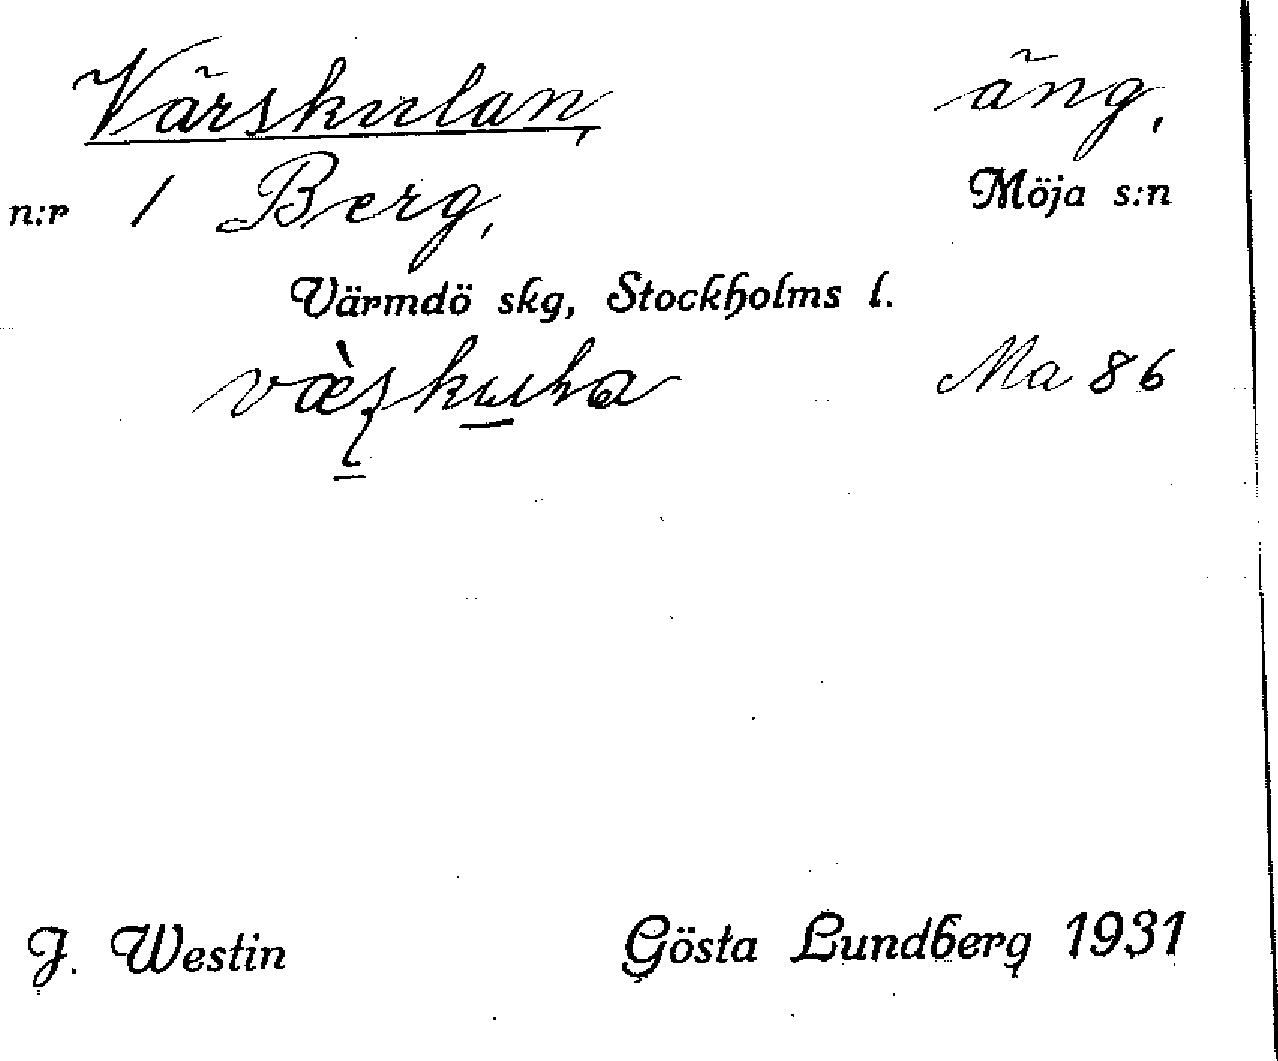 Värskulan, äng,
n:r 1 Berg, Möja s:n
Värmdö skg, Stockholms l.
Ma 86
J. Westin Gösta Lundberg 1931